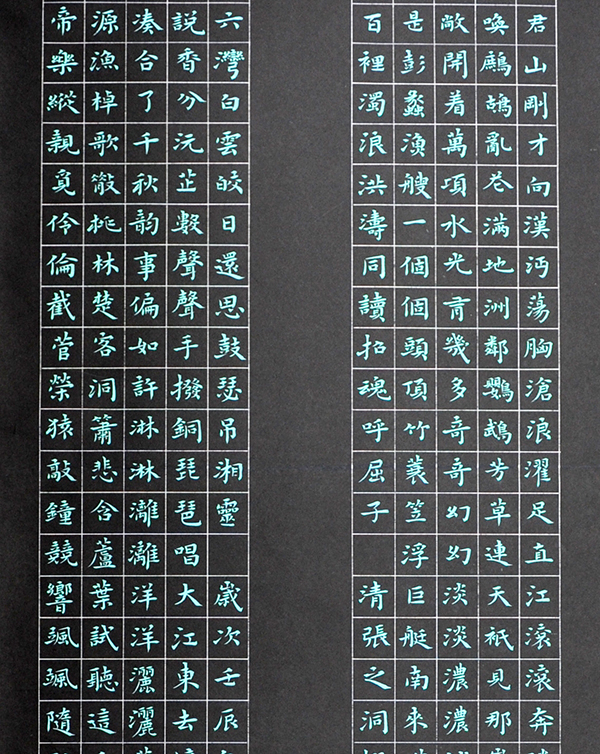 君山剛才向漢沔蕩胸滄浪濯足直江滾滾奔
喚鷓鴣亂花滿地洲鄰鸚鵡芳草連天祇見那
敞開着萬項水光育幾多奇奇幻幻淡淡濃濃
是彭蠡漁艘一個個頭頂竹蓑笠浮巨艇南來
百裡濁浪洪濤同讀招魂呼屈子 清張之洞
六灣白雲皎日還思鼓瑟吊湘靈 歲次壬辰
説香分沅芷數聲聲手撥銅琵琶唱大江東去
湊合了千秋韵事偏如許淋淋灕灕洋洋灑灑
源漁棹歌散桃林楚客洞簫悲含蘆葉試聽這
帝樂縱親覓伶倫截菅榮猿敲鐘競響颯颯隨